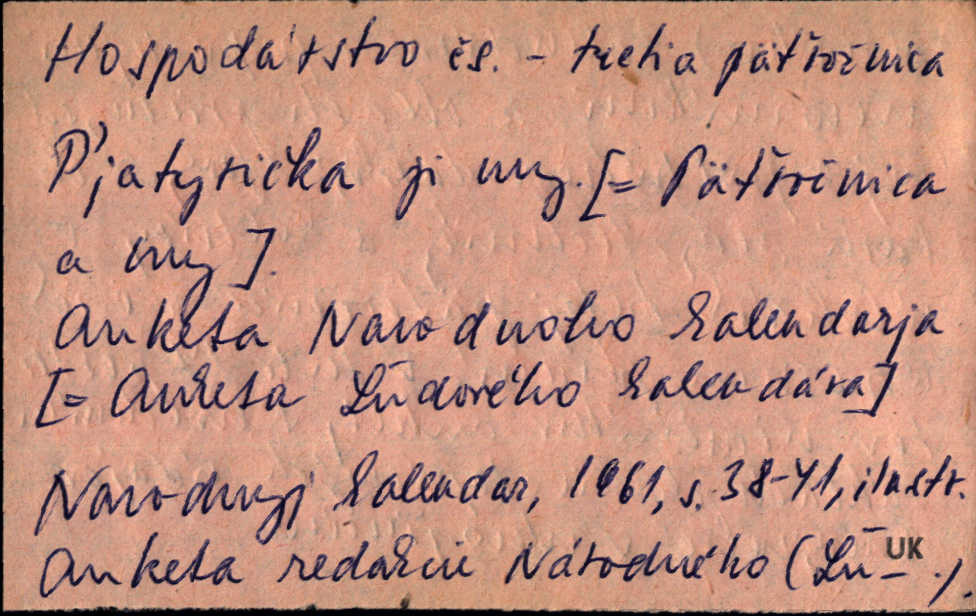 Hospodárstvo čs. - tretia päťročnica
P'jatyrička ji my. [= Päťročnica
a my].
Anketa Narodnoho kalendarja
[= Anketa Ľudového kalendára]
Narodnyj kalendar, 1961, s. 38-41, ilustr.
Anketa redakcie Národného (Ľu-.)
UK